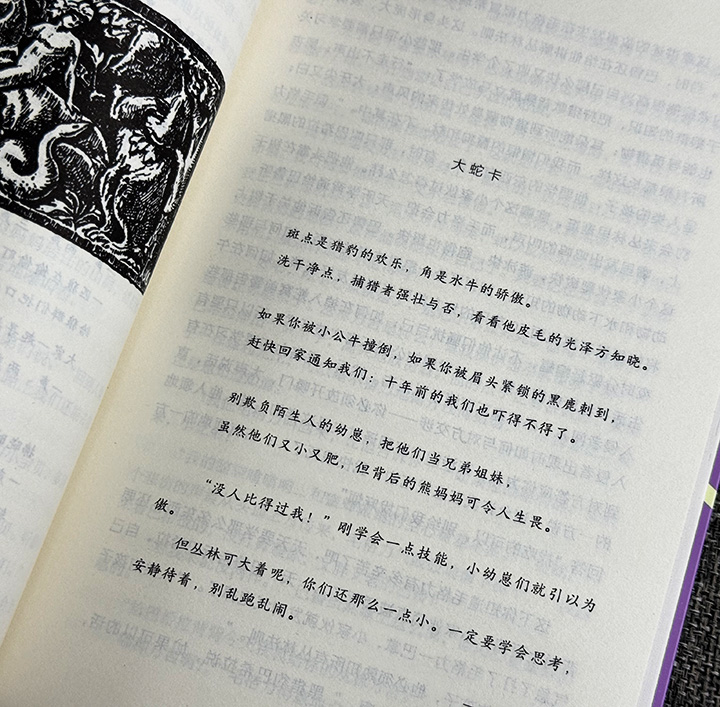 大蛇卡
斑点是猎豹的欢乐，角是水牛的骄傲。
洗干净点，捕猎者强壮与否，看看他皮毛的光泽方知晓。
如果你被小公牛撞倒，如果你被眉头紧锁的黑鹿刺到，
赶快回家通知我们：十年前的我们也吓得不得了。
别欺负陌生人的幼崽，把他们当兄弟姐妹，
虽然他们又小又肥，但背后的熊妈妈可令人生畏。
“没人比得过我！”刚学会一点技能，小幼崽们就引以为
傲。
但丛林可大着呢，你们还那么一点小。一定要学会思考，
安静待着，别乱跑乱闹。